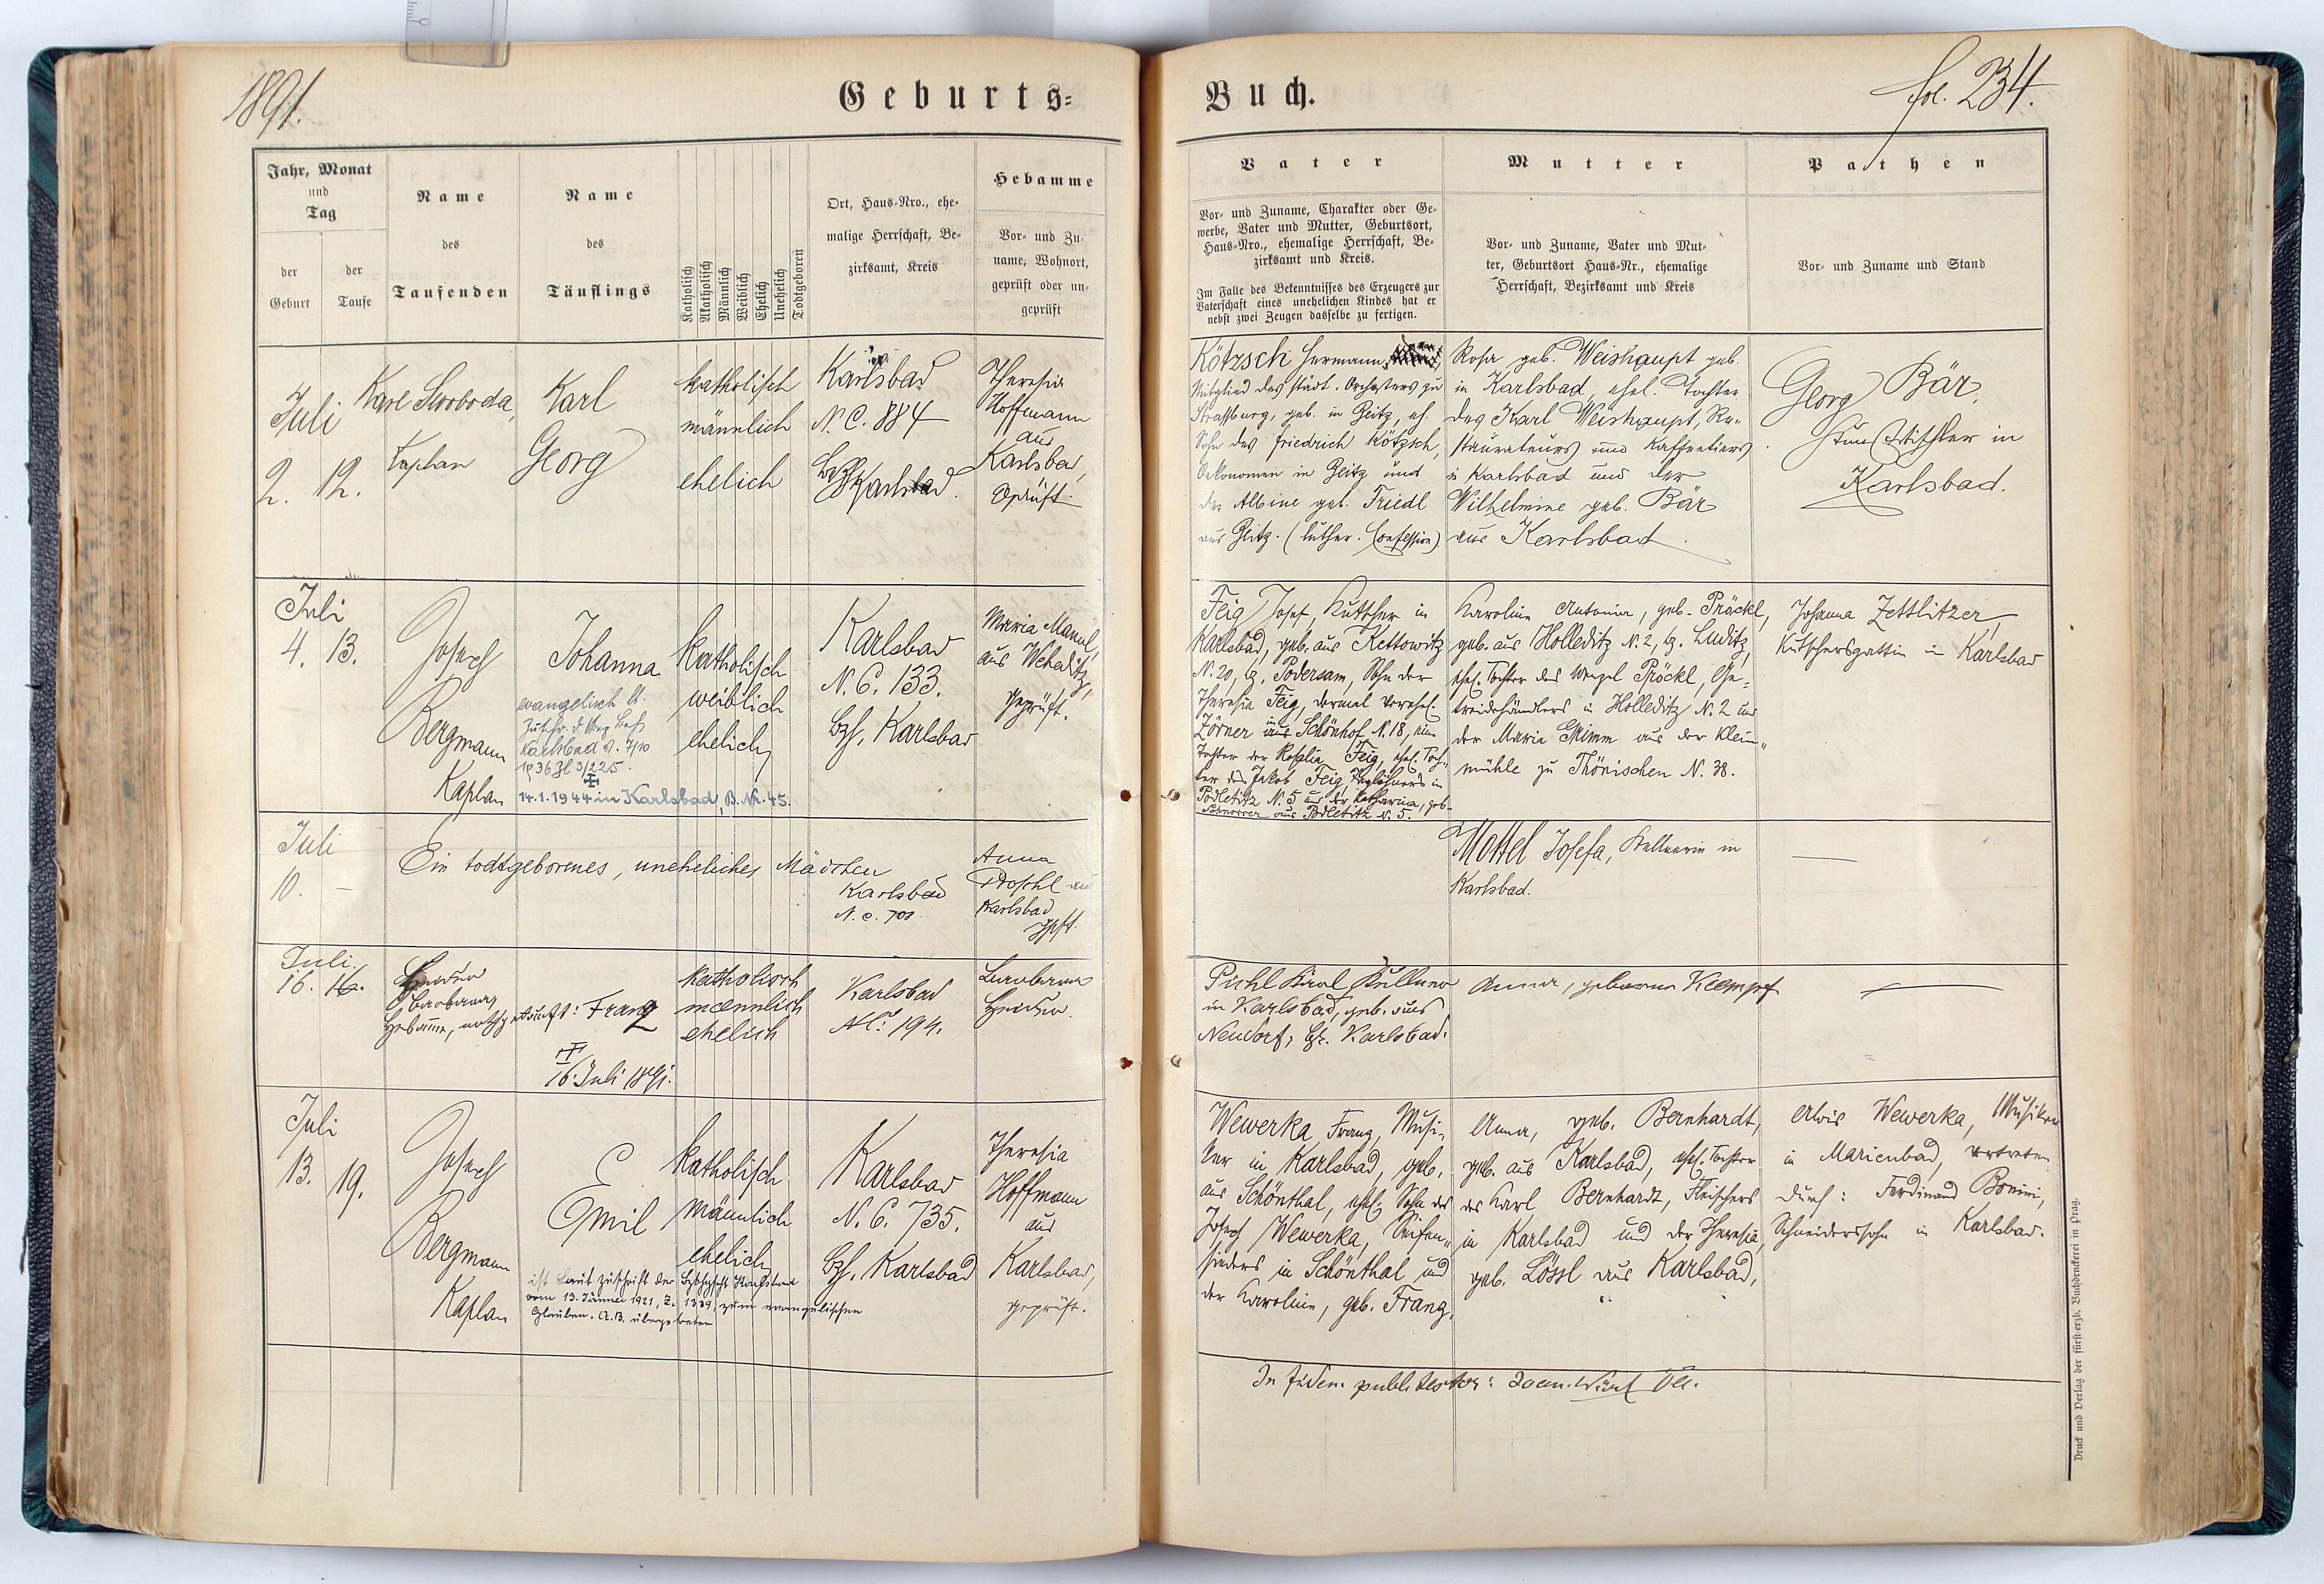 1891.
Geburts=
Jahr, Monat
und
Tag
der
Geburt
der
Taufe
Name
des
Taufenden
Name
des
Täuflings
Katholisch
Akatholisch
Männlich
Weiblich
Ehelich
Unehelich
Todtgeboren
Ort, Haus=Nro., ehe=
malige Herrschaft, Be=
zirksamt, Kreis
Hebamme
Vor= und Zu=
name, Wohnort,
geprüft oder un=
geprüft
Juli
2. 12.
Karl Swoboda,
Kaplan
Karl
Georg
katholisch
männlich
ehelich
Karlsbad
N. C. 884
Karlsbad.
Theresia
Hoffmann
aus
Karlsbad,
geprüft.
Juli
4. 13.
Josef
Bergmann
Kaplan
Johanna
evangelisch lt.
Karlsbad v. 7/10
1936 Zl 3/225.
14.1.1944 in Karlsbad, B. Nr. 45.
katholisch
weiblich
ehelich
Karlsbad
N. C. 133.
Bzh. Karlsbad
Maria Mannl,
aus Weheditz,
geprüft.
Juli
10. –
Ein todtgeborenes, uneheliches Mädchen
Karlsbad
N. C. 701
Anna
Karlsbad
gpft.
Juli
16. 16.
Barbara
Hebamme, nothgetauft: Franz
16. Juli 1891.
katholisch
männlich
ehelich
Karlsbad
NC. 194.
Barbara
Juli
13. 19.
Josef
Bergmann
Kaplan
Emil
ist laut Zuschrift der
vom 13. Jänner 1921, Z. 1339, zum evangelischen
Glauben A.B. übergetreten
katholisch
männlich
ehelich
Karlsbad
N. C. 735.
Bzh. Karlsbad
Theresia
Hoffmann
aus
Karlsbad,
geprüft.
Buch.
fol. 234.
Vater
Vor= und Zuname, Charakter oder Ge=
werbe, Vater und Mutter, Geburtsort,
Haus=Nro., ehemalige Herrschaft, Be=
zirksamt und Kreis.
Im Falle des Bekenntnisses des Erzeugers zur
Vaterschaft eines unehelichen Kindes hat er
nebst zwei Zeugen dasselbe zu fertigen.
Mutter
Vor= und Zuname, Vater und Mut=
ter, Geburtsort Haus=Nr., ehemalige
Herrschaft, Bezirksamt und Kreis
Pathen
Vor= und Zuname und Stand
Kötzsch Hermann
Mitglied des städt. Orchesters zu
Strassburg, geb. in Zeitz, eh.
Sohn des Friedrich Kötzsch,
Oekonomen in Zeitz und
der Albine geb. Friedl
aus Zeitz. (luther. Confession).
Rosa geb. Weishaupt geb.
in Karlsbad, ehel. Tochter
des Karl Weishaupt, Re=
staurateurs und Kaffeetiers
in Karlsbad und der
Wilhelmine geb. Bär
aus Karlsbad.
Georg Bär,
Kunsttischler in
Karlsbad.
Feig Josef, Kutscher in
Karlsbad, geb. aus Kettowitz
N. 20, Bz. Podersam, Sohn der
Theresia Feig, dermal verehel.
Zörner aus Schönhof N. 18, einer
Tochter der Rosalia Feig, ehel. Toch=
ter des Jakob Feig, Taglöhners in
Podletitz N. 5 und der Katharina, geb.
aus Podletitz N. 5.
Karoline Antonia, geb. Pröckl,
geb. aus Holleditz N. 2, Bz. Luditz,
ehel. Tochter des Wenzel Pröckl, Ge=
treidehändlers in Holleditz N. 2 und
der Maria Grimm aus der Klein=
mühle zu Thönischen N. 38.
Johanna Zettlitzer,
Kutschersgattin in Karlsbad
Mottel Josefa, Kellnerin in
Karlsbad.
Pichl Karl Kellner
in Karlsbad, geb. aus
Neudorf, Bz. Karlsbad.
Anna, geborene Klempf
Wewerka, Franz, Musi=
ker in Karlsbad, geb.
aus Schönthal, ehel. Sohn des
Josef Wewerka, Seifen=
sieders in Schönthal und
der Karoline, geb. Franz.
Anna, geb. Bernhardt,
geb. aus Karlsbad, ehel. Tochter
des Karl Bernhardt, Fleischers
in Karlsbad und der Theresia,
geb. Lössl aus Karlsbad,
Alois Wewerka, Musiker
in Marienbad, vertreten
durch: Ferdinand Bonini,
Schneiderssohn in Karlsbad.
Druck und Verlag der fürst=erzb. Buchdruckerei in Prag.